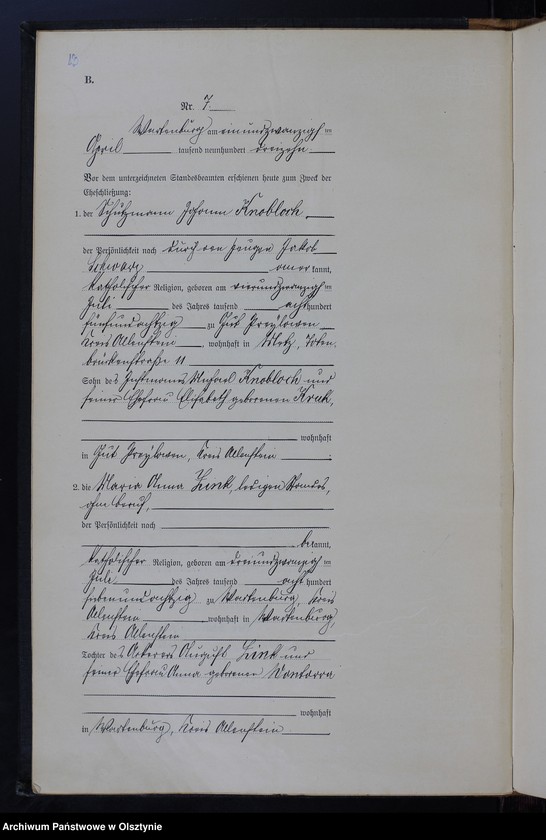 13
B.
Nr. 7.
Wartenburg am einundzwanzigsten
April tausend neunhundert dreizehn
Vor dem unterzeichneten Standesbeamten erschienen heute zum Zweck der
Eheschließung:
1. der Schutzmann Johann Knobloch,
der Persönlichkeit nach durch den Zeugen Jakob
Schwarz anerkannt,
katholischer Religion, geboren am vierundzwanzigsten
Juli des Jahres tausend achthundert
fünfundachtzig zu Gut Preylowen
Kreis Allenstein, wohnhaft in Metz, Toten-
brückenstraße 11
Sohn des Instmanns Michael Knobloch und
seiner Ehefrau Elisabeth geborenen Kruk,
wohnhaft
in Gut Preylowen, Kreis Allenstein ;
2. die Maria Anna Link, ledigen Standes,
ohne Beruf,
der Persönlichkeit nach
bekannt,
katholischer Religion, geboren am dreiundzwanzigsten
Juli des Jahres tausend achthundert
siebenundachtzig zu Wartenburg, Kreis
Allenstein, wohnhaft in Wartenburg,
Kreis Allenstein
Tochter des August Link und
seiner Ehefrau Anna geborener Wontorra
wohnhaft
in Wartenburg, Kreis Allenstein
Archiwum Państwowe w Olsztynie